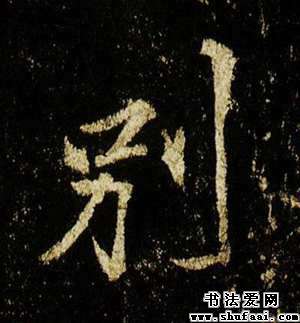 别
书法爱网
www.shufaai.com